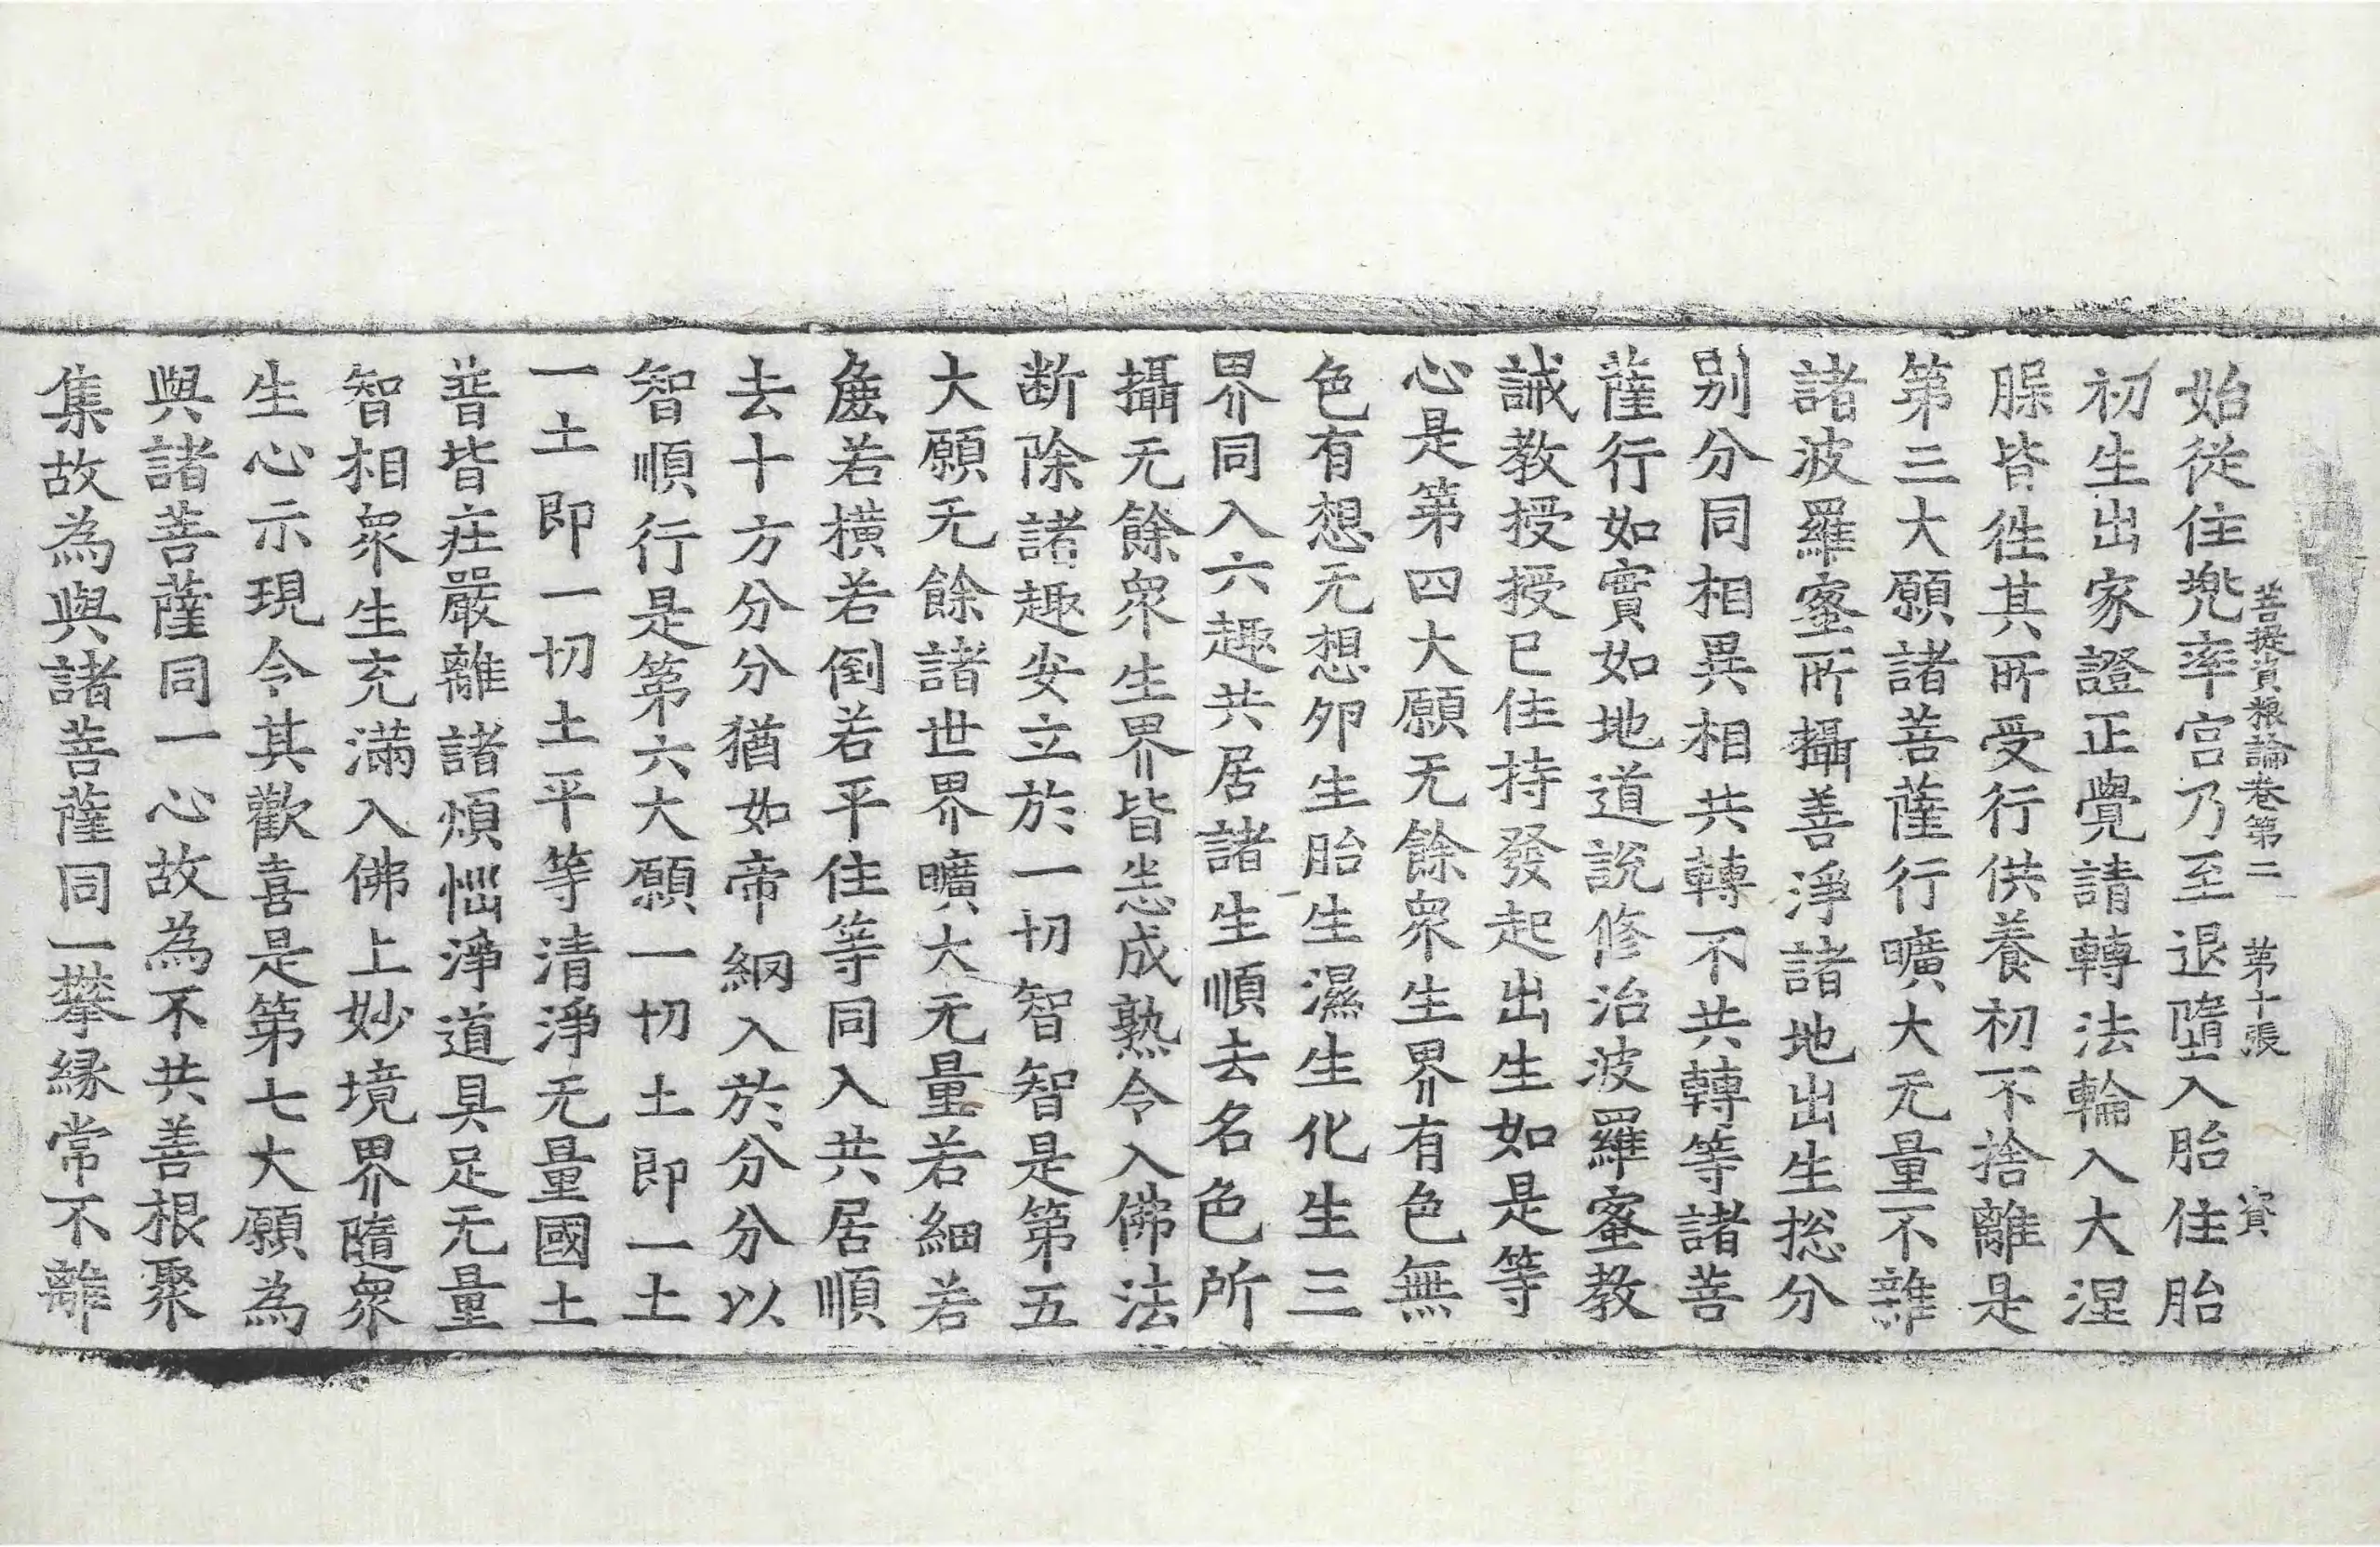 菩提資粮論卷第二　第十張　賓
始從住兠率宮乃至退墮入胎住胎
初生出家證正覺請轉法輪入大涅
㬷皆徃其所受行供養初不捨離是
第三大願諸菩薩行曠大无量不雜
諸波羅蜜所攝善淨諸地出生捴分
别分同相異相共轉不共轉等諸菩
薩行如實如地道說修治波羅蜜教
誡教授授已住持發起出生如是等
心是第四大願无餘衆生界有色無
色有想无想夘生胎生濕生化生三
界同入六趣共居諸生順去名色所
攝无餘衆生界皆悉成熟令入佛法
断除諸趣安立於一切智智是第五
大願无餘諸世界曠大无量若細若
麁若横若倒若平住等同入共居順
去十方分分猶如帝網入於分分以
智順行是第六大願一切土即一土
一土即一切土平等清淨无量國土
普皆莊嚴離諸煩惱淨道具足无量
智相衆生充滿入佛上妙境界隨衆
生心示現令其歡喜是第七大願為
與諸菩薩同一心故為不共善根聚
集故為與諸菩薩同一攀緣常不離